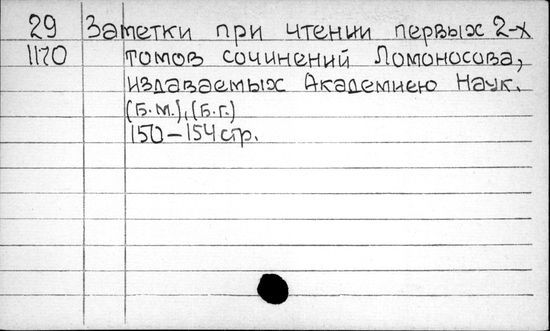 29 Заметки при чтении первых 2-х
1170 томов сочинений Ломоносова,
издаваемых Академиею Наук.
(Б.м.), (Б.г.)
150-154 стр.